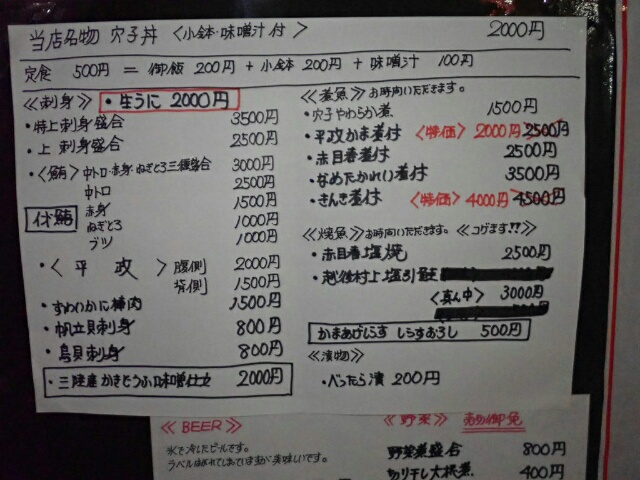 当店名物 穴子丼 〈小鉢・味噌汁付〉 2000円
定食 500円 = 御飯 200円 + 小鉢 200円 + 味噌汁 100円
≪刺身≫ ・生うに 2000円
・特上刺身盛合 3500円
・上 刺身盛合 2500円
・〈鮪〉中トロ・赤身・ねぎとろ三種盛合 3000円
中トロ 2500円
赤身 1500円
ねぎとろ 1000円
ブツ 1000円
・〈平政〉腹側 2000円
背側 1500円
・すわいかに棒肉 1500円
・帆立貝刺身 800円
・鳥貝刺身 800円
・三陸産 かきどうふ味噌仕立 2000円
≪煮魚≫ お時間いただきます。
・穴子やわらか煮 1500円
・平政かま煮付 〈特価〉 2000円 2500円
・赤目春煮付 2500円
・なめたかれい煮付 3500円
・きんき煮付 〈特価〉 4000円 4500円
≪焼魚≫ お時間いただきます。 ≪コゲます!!≫
・赤目春塩焼 2500円
・越後村上塩引鮭
〈真ん中〉 3000円
かまあげしらす しらすおろし 500円
≪漬物≫
・べったら漬 200円
≪BEER≫
氷で冷したビールです。
ラベルはがれてしまいますが美味しいです。
≪野菜≫
野菜煮盛合 800円
切り干し大根煮 400円